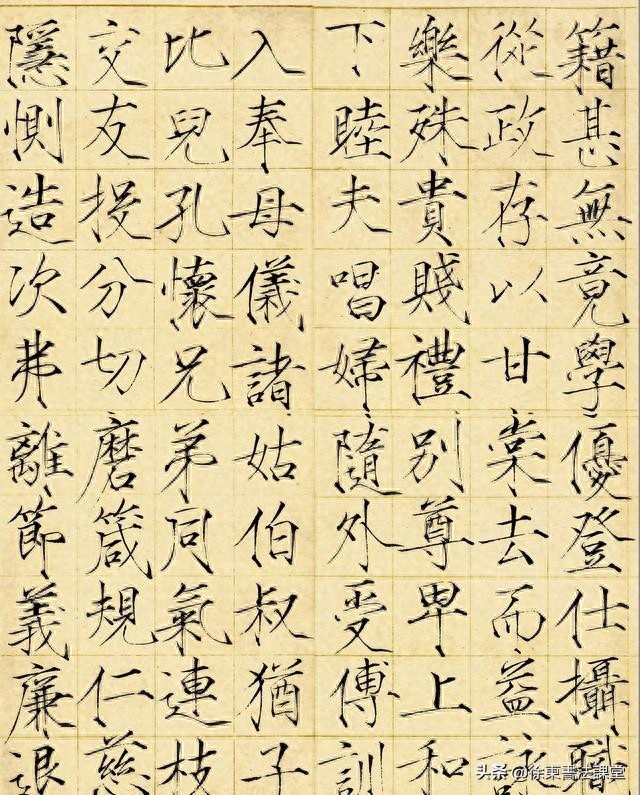 籍甚無竟學優登仕攝職
從政存以甘棠去而益詠
樂殊貴賤禮別尊卑上和
下睦夫唱婦隨外受傅訓
入奉母儀諸姑伯叔猶子
比兒孔懷兄弟同氣連枝
交友投分切磨箴規仁慈
隱惻造次弗離節義廉退
头条 @徐東書法課堂